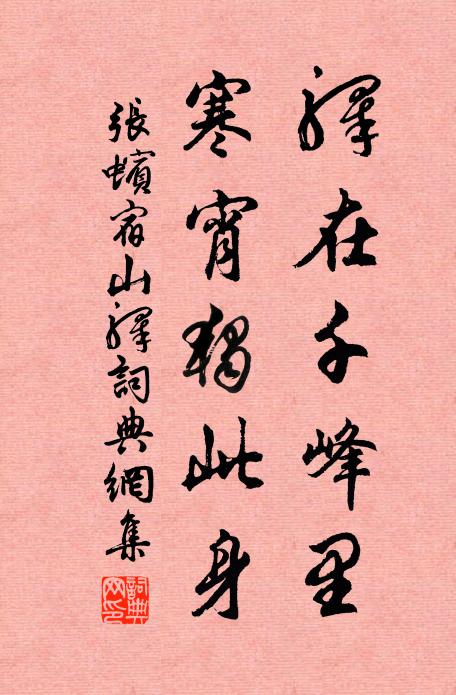 驛在千峰里
寒宵獨此身
張蠙宿山驛詞典網集
詞典網印